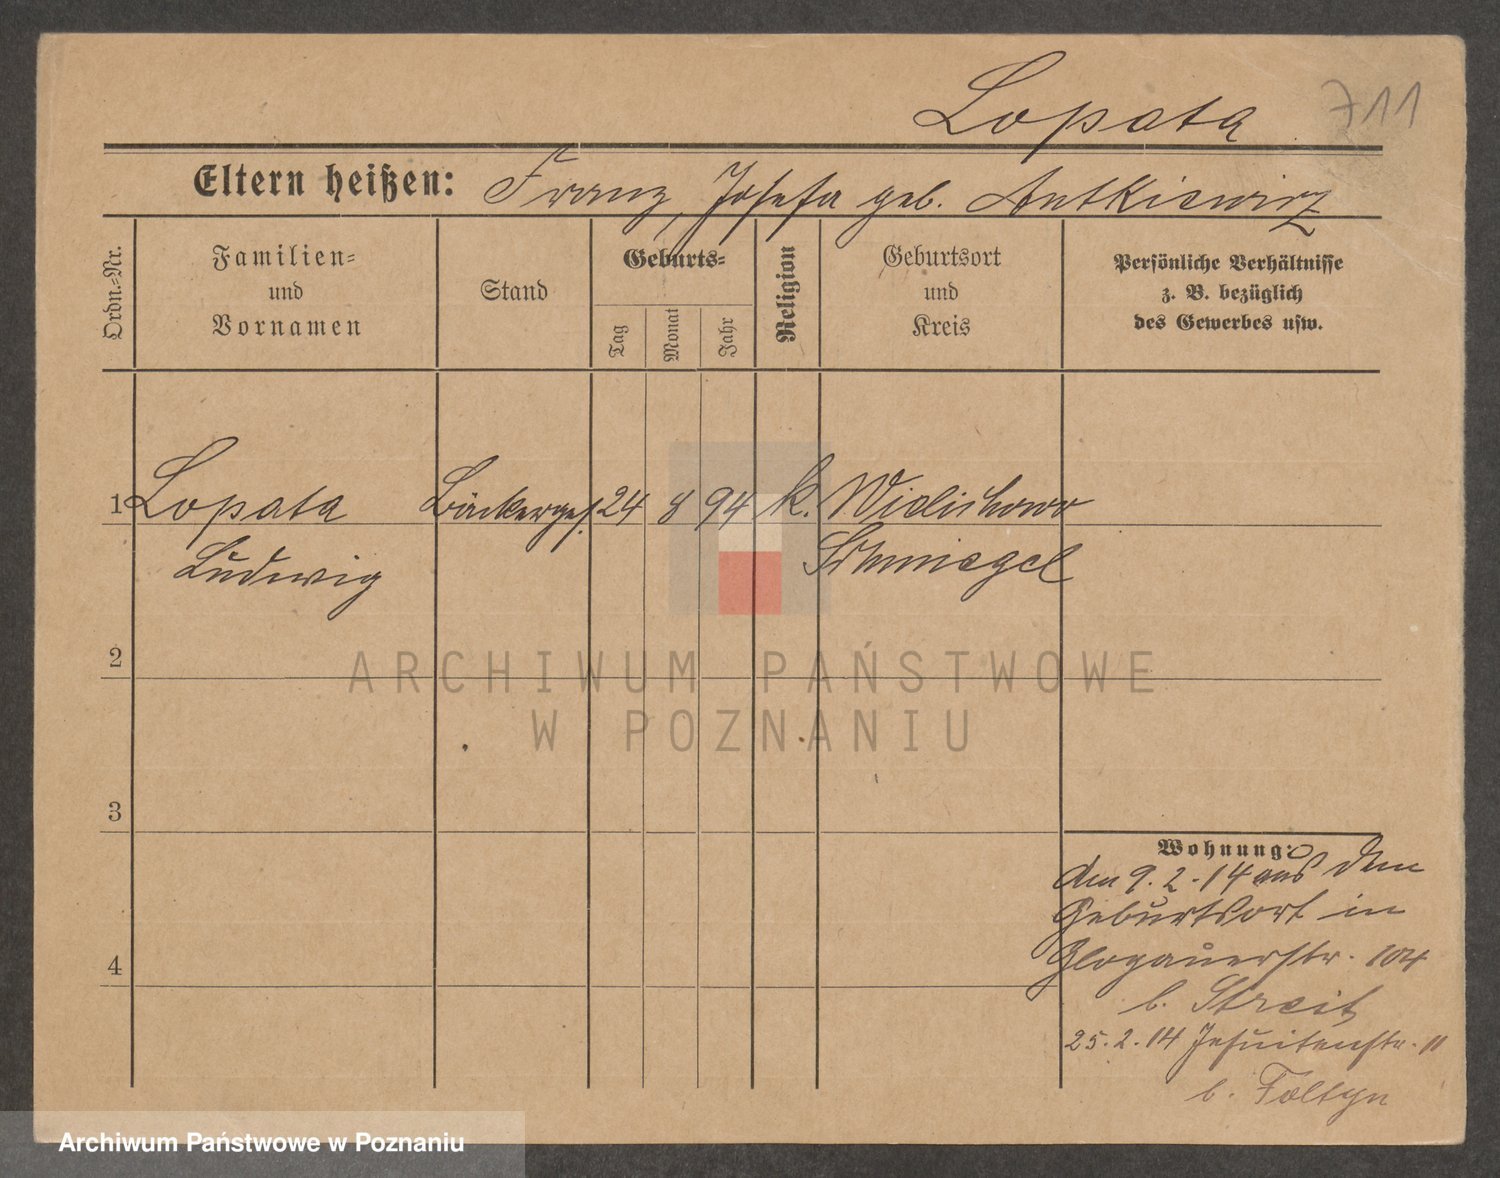 Lopata
711
Eltern heißen: Franz, Josefa geb. Antkiewicz
Ordn.=Nr.
Familien=
und
Vornamen
Stand
Geburts=
Tag
Monat
Jahr
Religion
Geburtsort
und
Kreis
Persönliche Verhältnisse
z. B. bezüglich
des Gewerbes usw.
1 Lopata Bäckerges. 24 8 94 k. Wielichowo
Ludwig Schmiegel
2
ARCHIWUM PAŃSTWOWE
W POZNANIU
3
Wohnung:
den 9.2.14 aus dem
Geburtsort in
4
Glogauerstr. 104
b. Streit
25.2.14 Jesuitenstr. 11
b. Foltyn
Archiwum Państwowe w Poznaniu